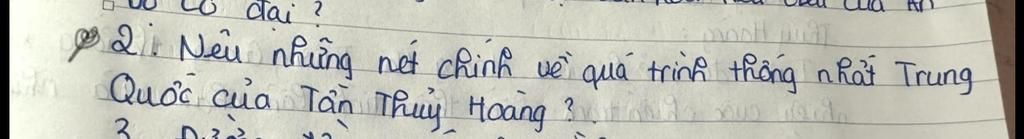 cổ đại ?
2: Nêu những nét chính về quá trình thống nhất Trung
Quốc của Tần Thuỷ Hoàng ?
3